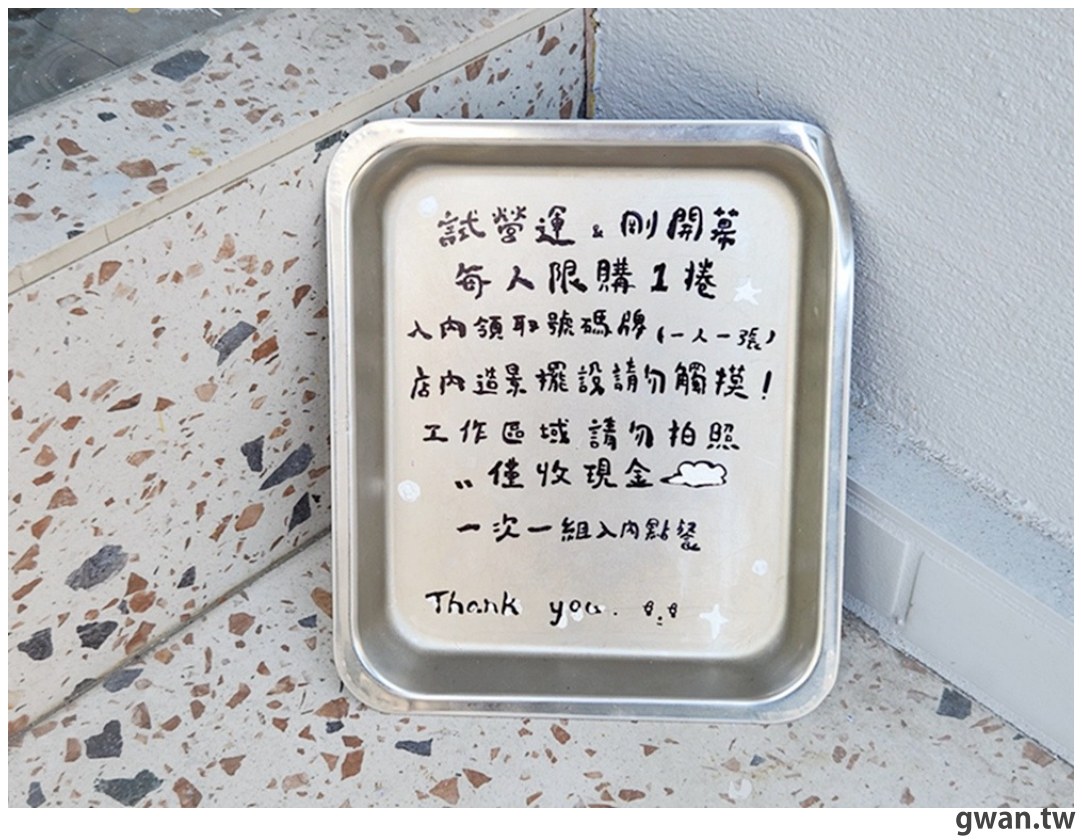 試營運 & 剛開幕
每人限購1捲
入內領取號碼牌(一人一張)
店內造景擺設請勿觸摸!
工作區域 請勿拍照
〃僅收現金
一次一組入內點餐
Thank you.
gwan.tw